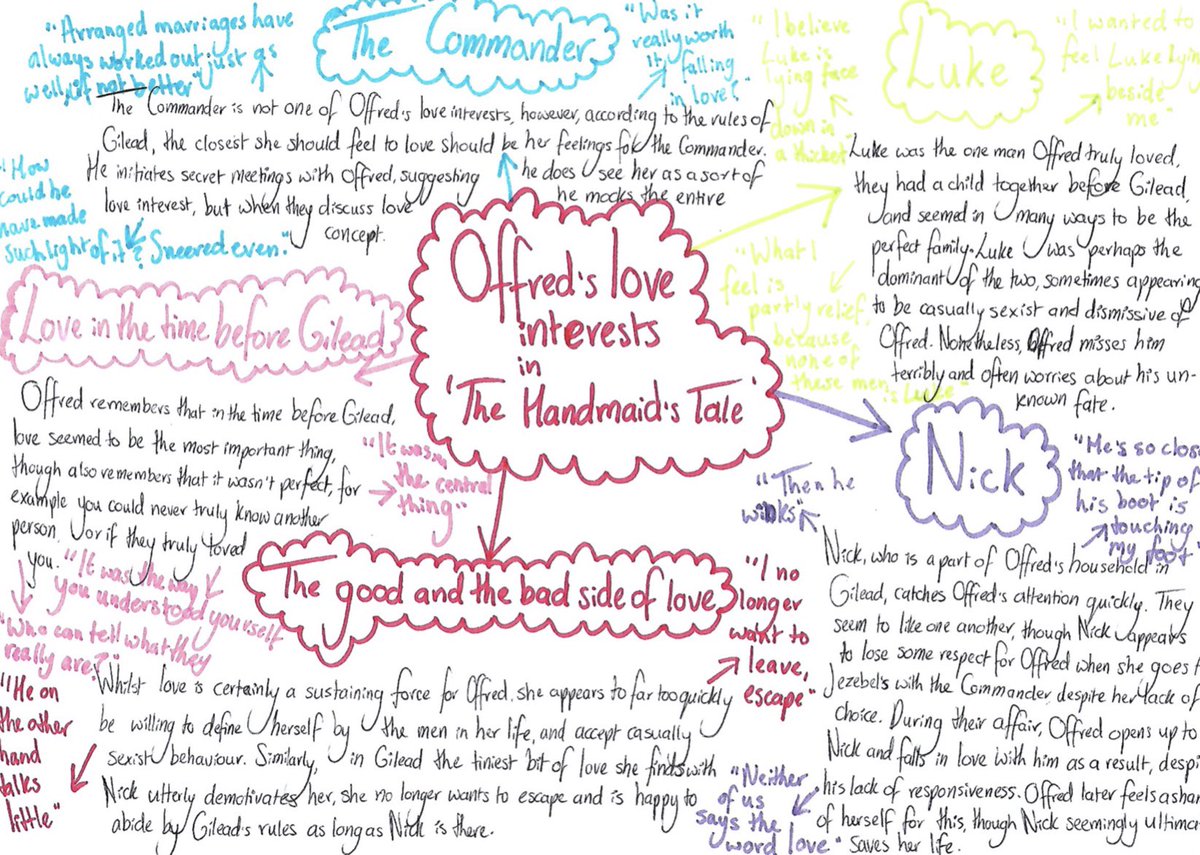 "Arranged marriages have
always worked out just as
well, if not better"
The Commander
"Was it
really worth
it, falling
in love?"
The Commander is not one of Offred's love interests, however, according to the rules of
Gilead, the closest she should feel to love should be her feelings for the Commander.
He initiates secret meetings with Offred, suggesting he does see her as a sort of
love interest, but when they discuss love he mocks the entire
concept.
"How
could he
have made
such light of it? Sneered even."
"I believe
Luke is
lying face
down in
a thicket"
Luke
"I wanted to
feel Luke lying
beside
me"
Luke was the one man Offred truly loved,
they had a child together before Gilead,
and seemed in many ways to be the
perfect family. Luke was perhaps the
dominant of the two, sometimes appearing
to be casually sexist and dismissive of
Offred. Nonetheless, Offred misses him
terribly and often worries about his un-
known fate.
"What I
feel is
partly relief,
because
none of
these men
is Luke"
Offred's love
interests
in
'The Handmaid's Tale'
Love in the time before Gilead
Offred remembers that in the time before Gilead,
love seemed to be the most important thing,
though also remembers that it wasn't perfect, for
example you could never truly know another
person, or if they truly loved
you.
"It was
the central
thing"
"It was the way
you understood yourself"
"Who can tell what they
really are?"
Nick
"Then he
winks"
"He's so close
that the tip of
his boot is
touching
my foot"
Nick, who is a part of Offred's household in
Gilead, catches Offred's attention quickly. They
seem to like one another, though Nick appears
to lose some respect for Offred when she goes t
Jezebel's with the Commander despite her lack of
choice. During their affair, Offred opens up to
Nick and falls in love with him as a result, despi
his lack of responsiveness. Offred later feels asham
of herself for this, though Nick seemingly ultima
saves her life.
"Neither
of us
says the
word love"
The good and the bad side of love
"I no
longer
want to
leave,
escape"
Whilst love is certainly a sustaining force for Offred, she appears to far too quickly
be willing to define herself by the men in her life, and accept casually
sexist behaviour. Similarly, in Gilead the tiniest bit of love she finds with
Nick utterly demotivates her, she no longer wants to escape and is happy to
abide by Gilead's rules as long as Nick is there.
"He on
the other
hand
talks
little"